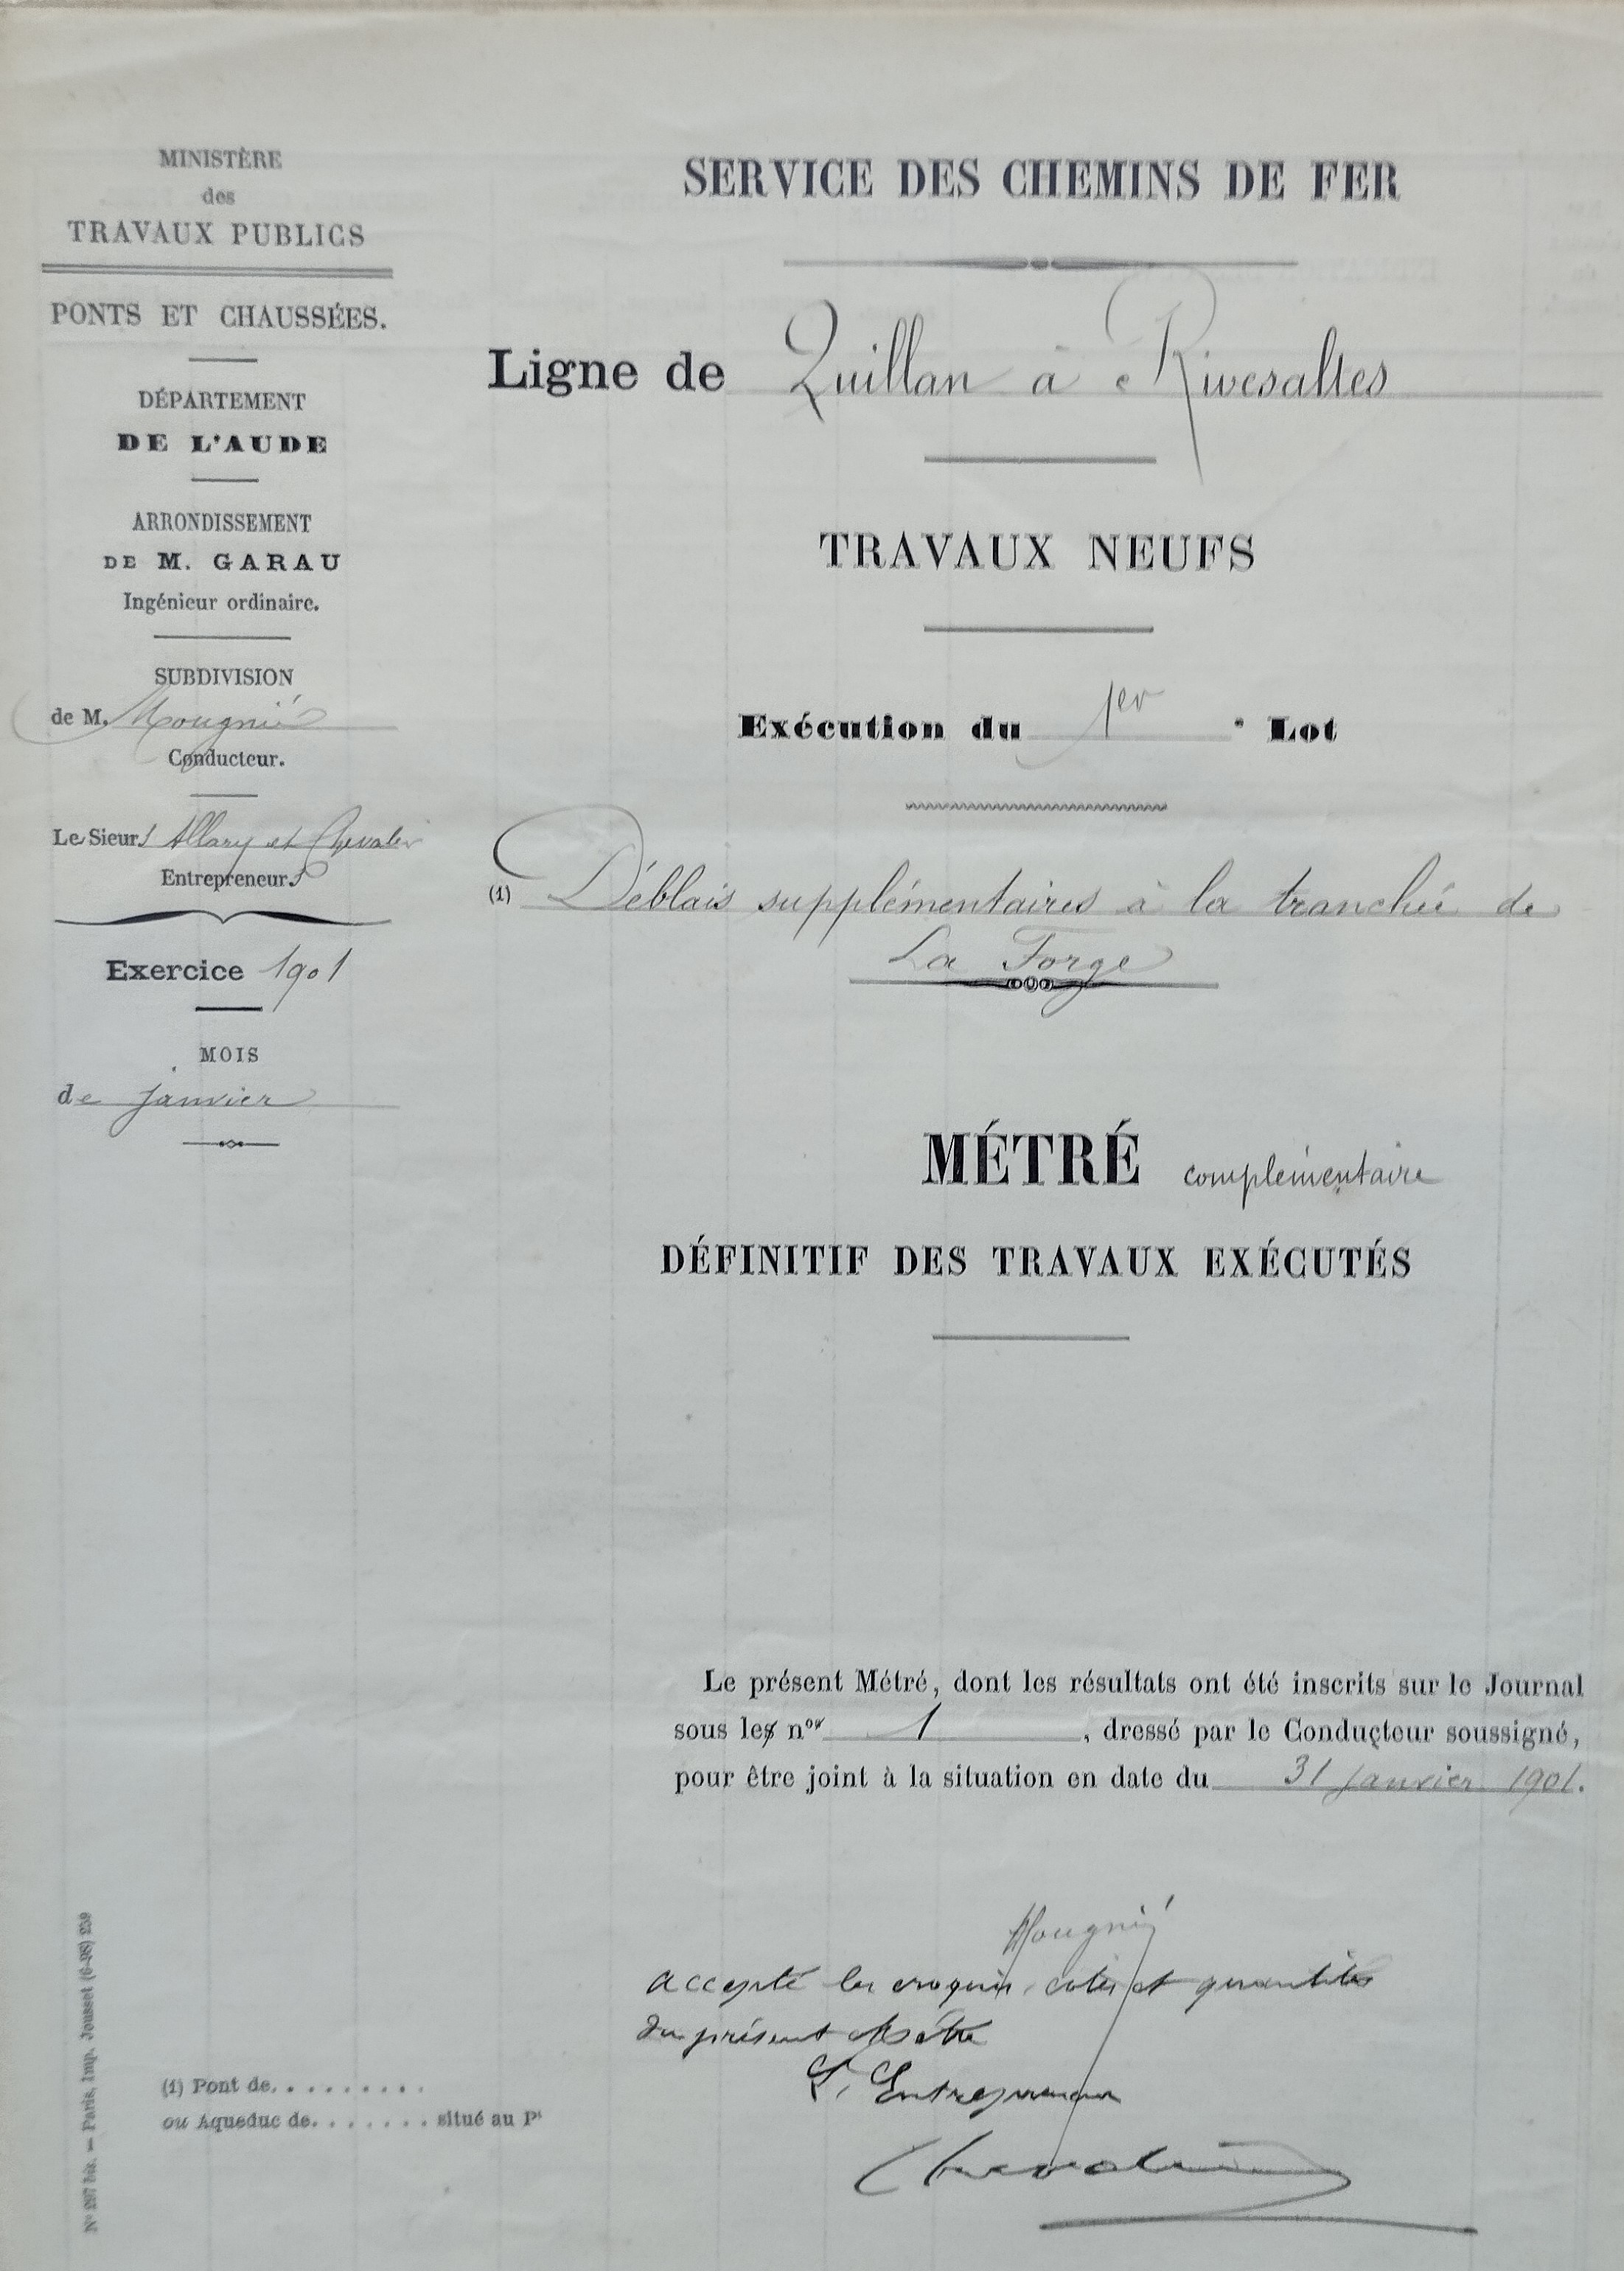 MINISTÈRE
des
TRAVAUX PUBLICS
PONTS ET CHAUSSÉES.
DÉPARTEMENT
DE L'AUDE
ARRONDISSEMENT
DE M. GARAU
Ingénieur ordinaire.
SUBDIVISION
de M. Mougnié
Conducteur.
Les Sieurs Allary et Chevalier
Entrepreneurs
Exercice 1901
MOIS
de janvier
SERVICE DES CHEMINS DE FER
Ligne de Quillan à Rivesaltes
TRAVAUX NEUFS
Exécution du 1er e Lot
(1) Déblais supplémentaires à la tranchée de
La Forge
MÉTRÉ complémentaire
DÉFINITIF DES TRAVAUX EXÉCUTÉS
Le présent Métré, dont les résultats ont été inscrits sur le Journal
sous les nos 1, dressé par le Conducteur soussigné,
pour être joint à la situation en date du 31 janvier 1901.
Mougnié
accepté les croquis, cotes et quantités
du présent Métré
L'Entrepreneur
Chevalier
(1) Pont de. . . . . . . . .
ou Aqueduc de. . . . . . . situé au Pt
N° 297 bis. — Paris, Imp. Jousset (6-98) 259